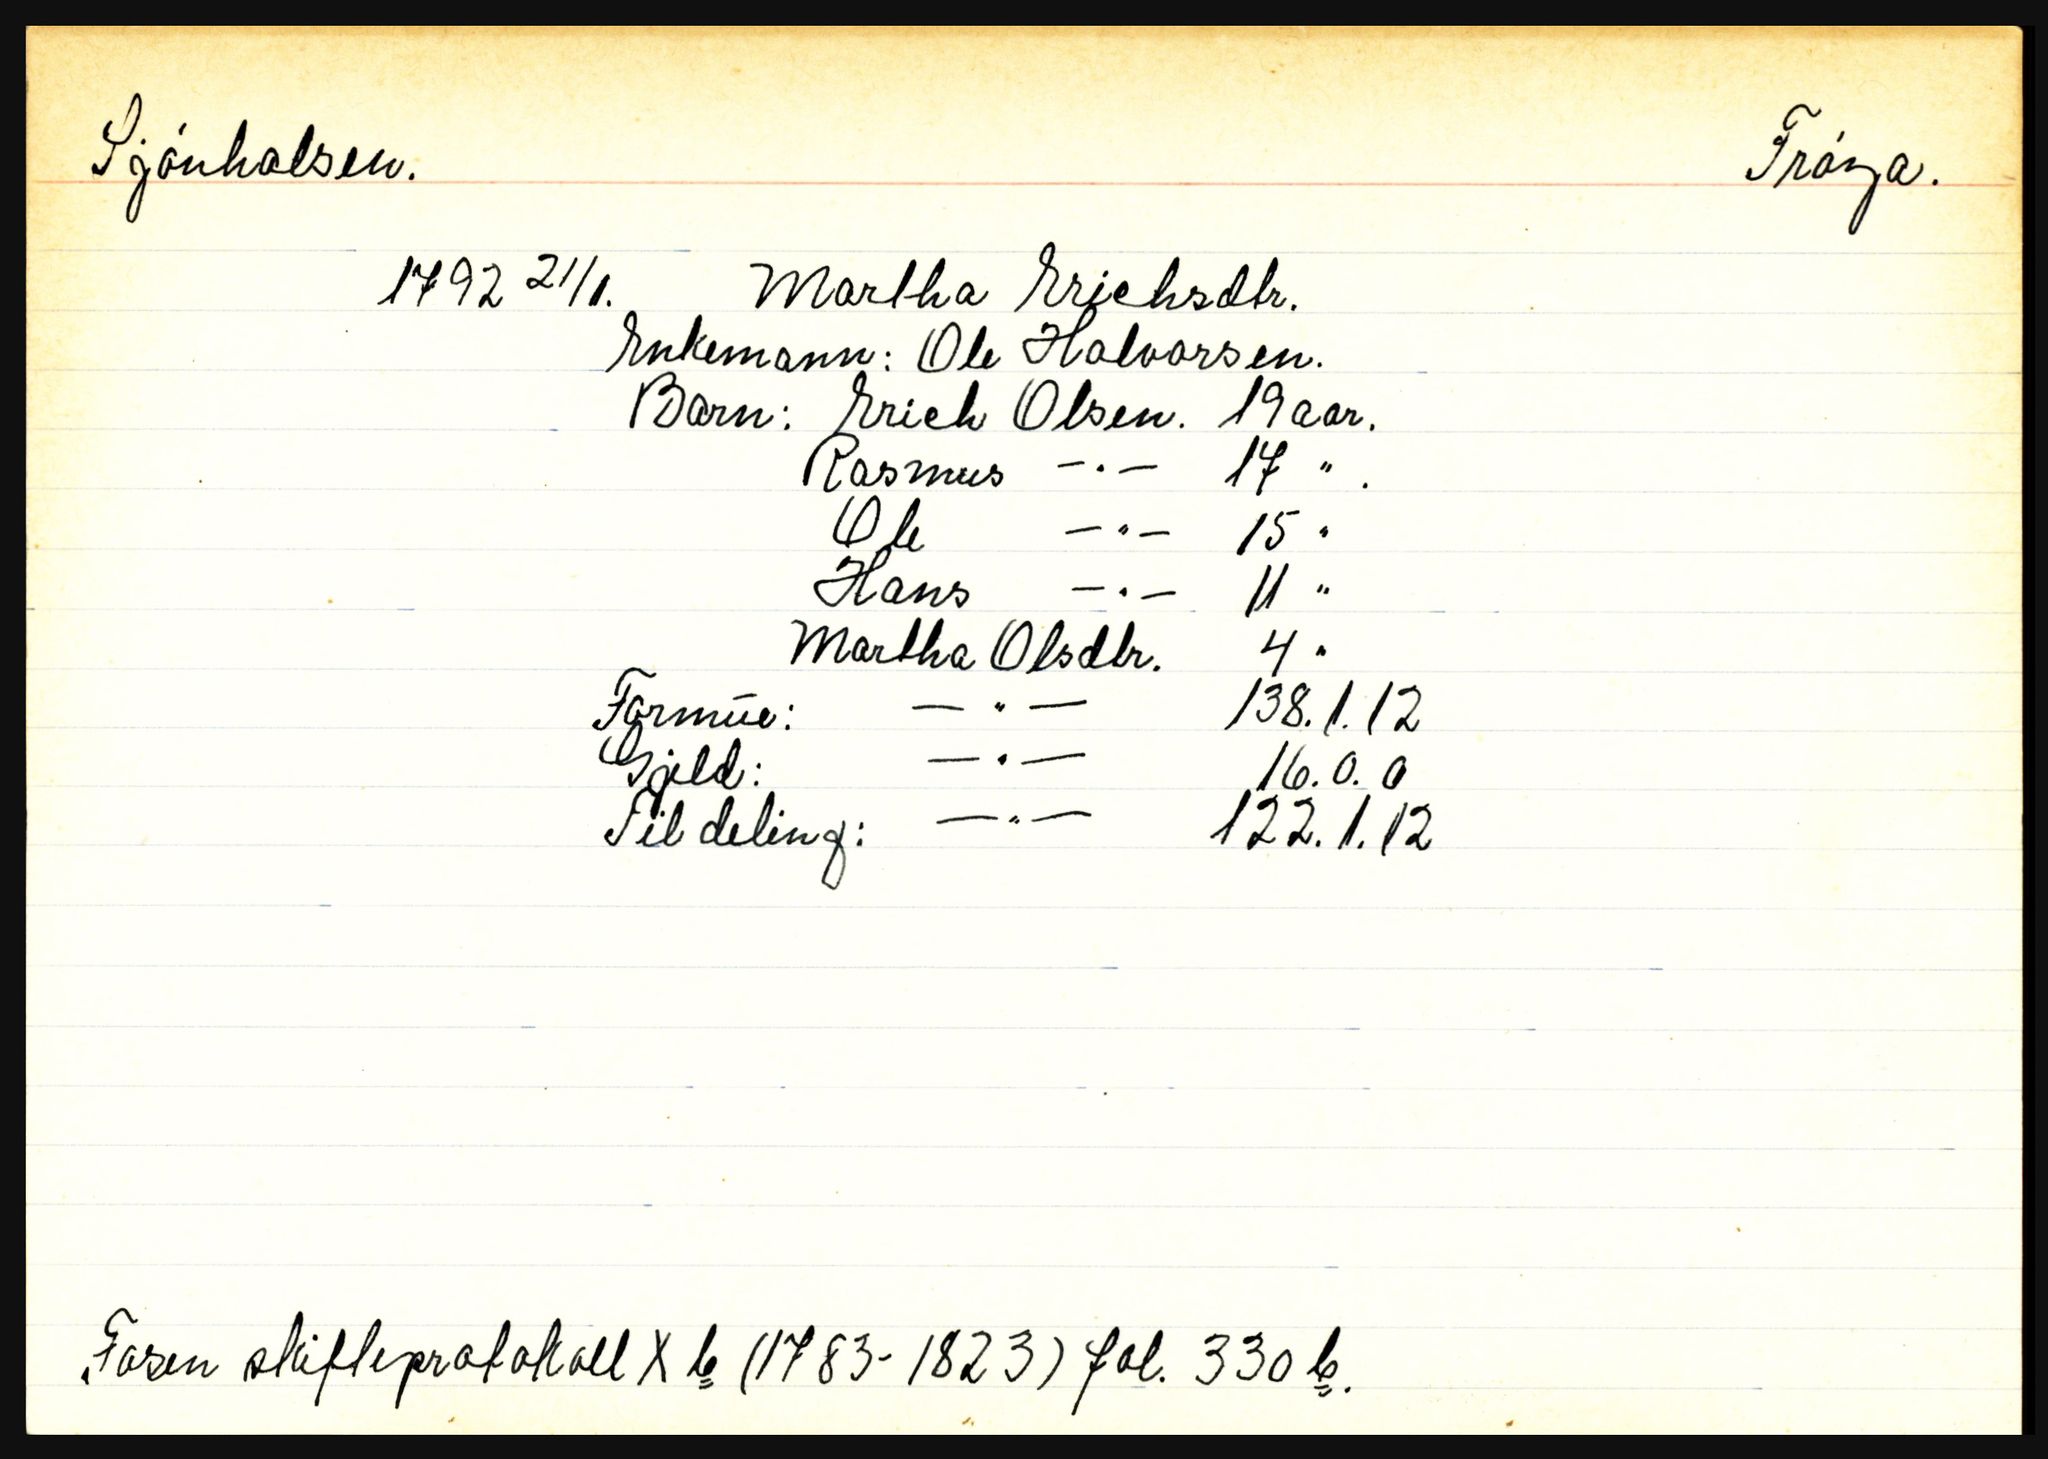 Sjönhalsen. Fröya.
1792 21/1. Martha Erichsdtr.
Enkemann: Ole Halvorsen.
Barn: Erich Olsen. 19 aar.
Rasmus —"— 17 ".
Ole —"— 15 "
Hans —"— 11 "
Martha Olsdtr. 4 "
Formūe: —"— 138.1.12
Gjeld: —"— 16.0.0
Til deling: —"— 122.1.12
Fosen skifteprotokoll X b (1783-1823) fol. 330 b.